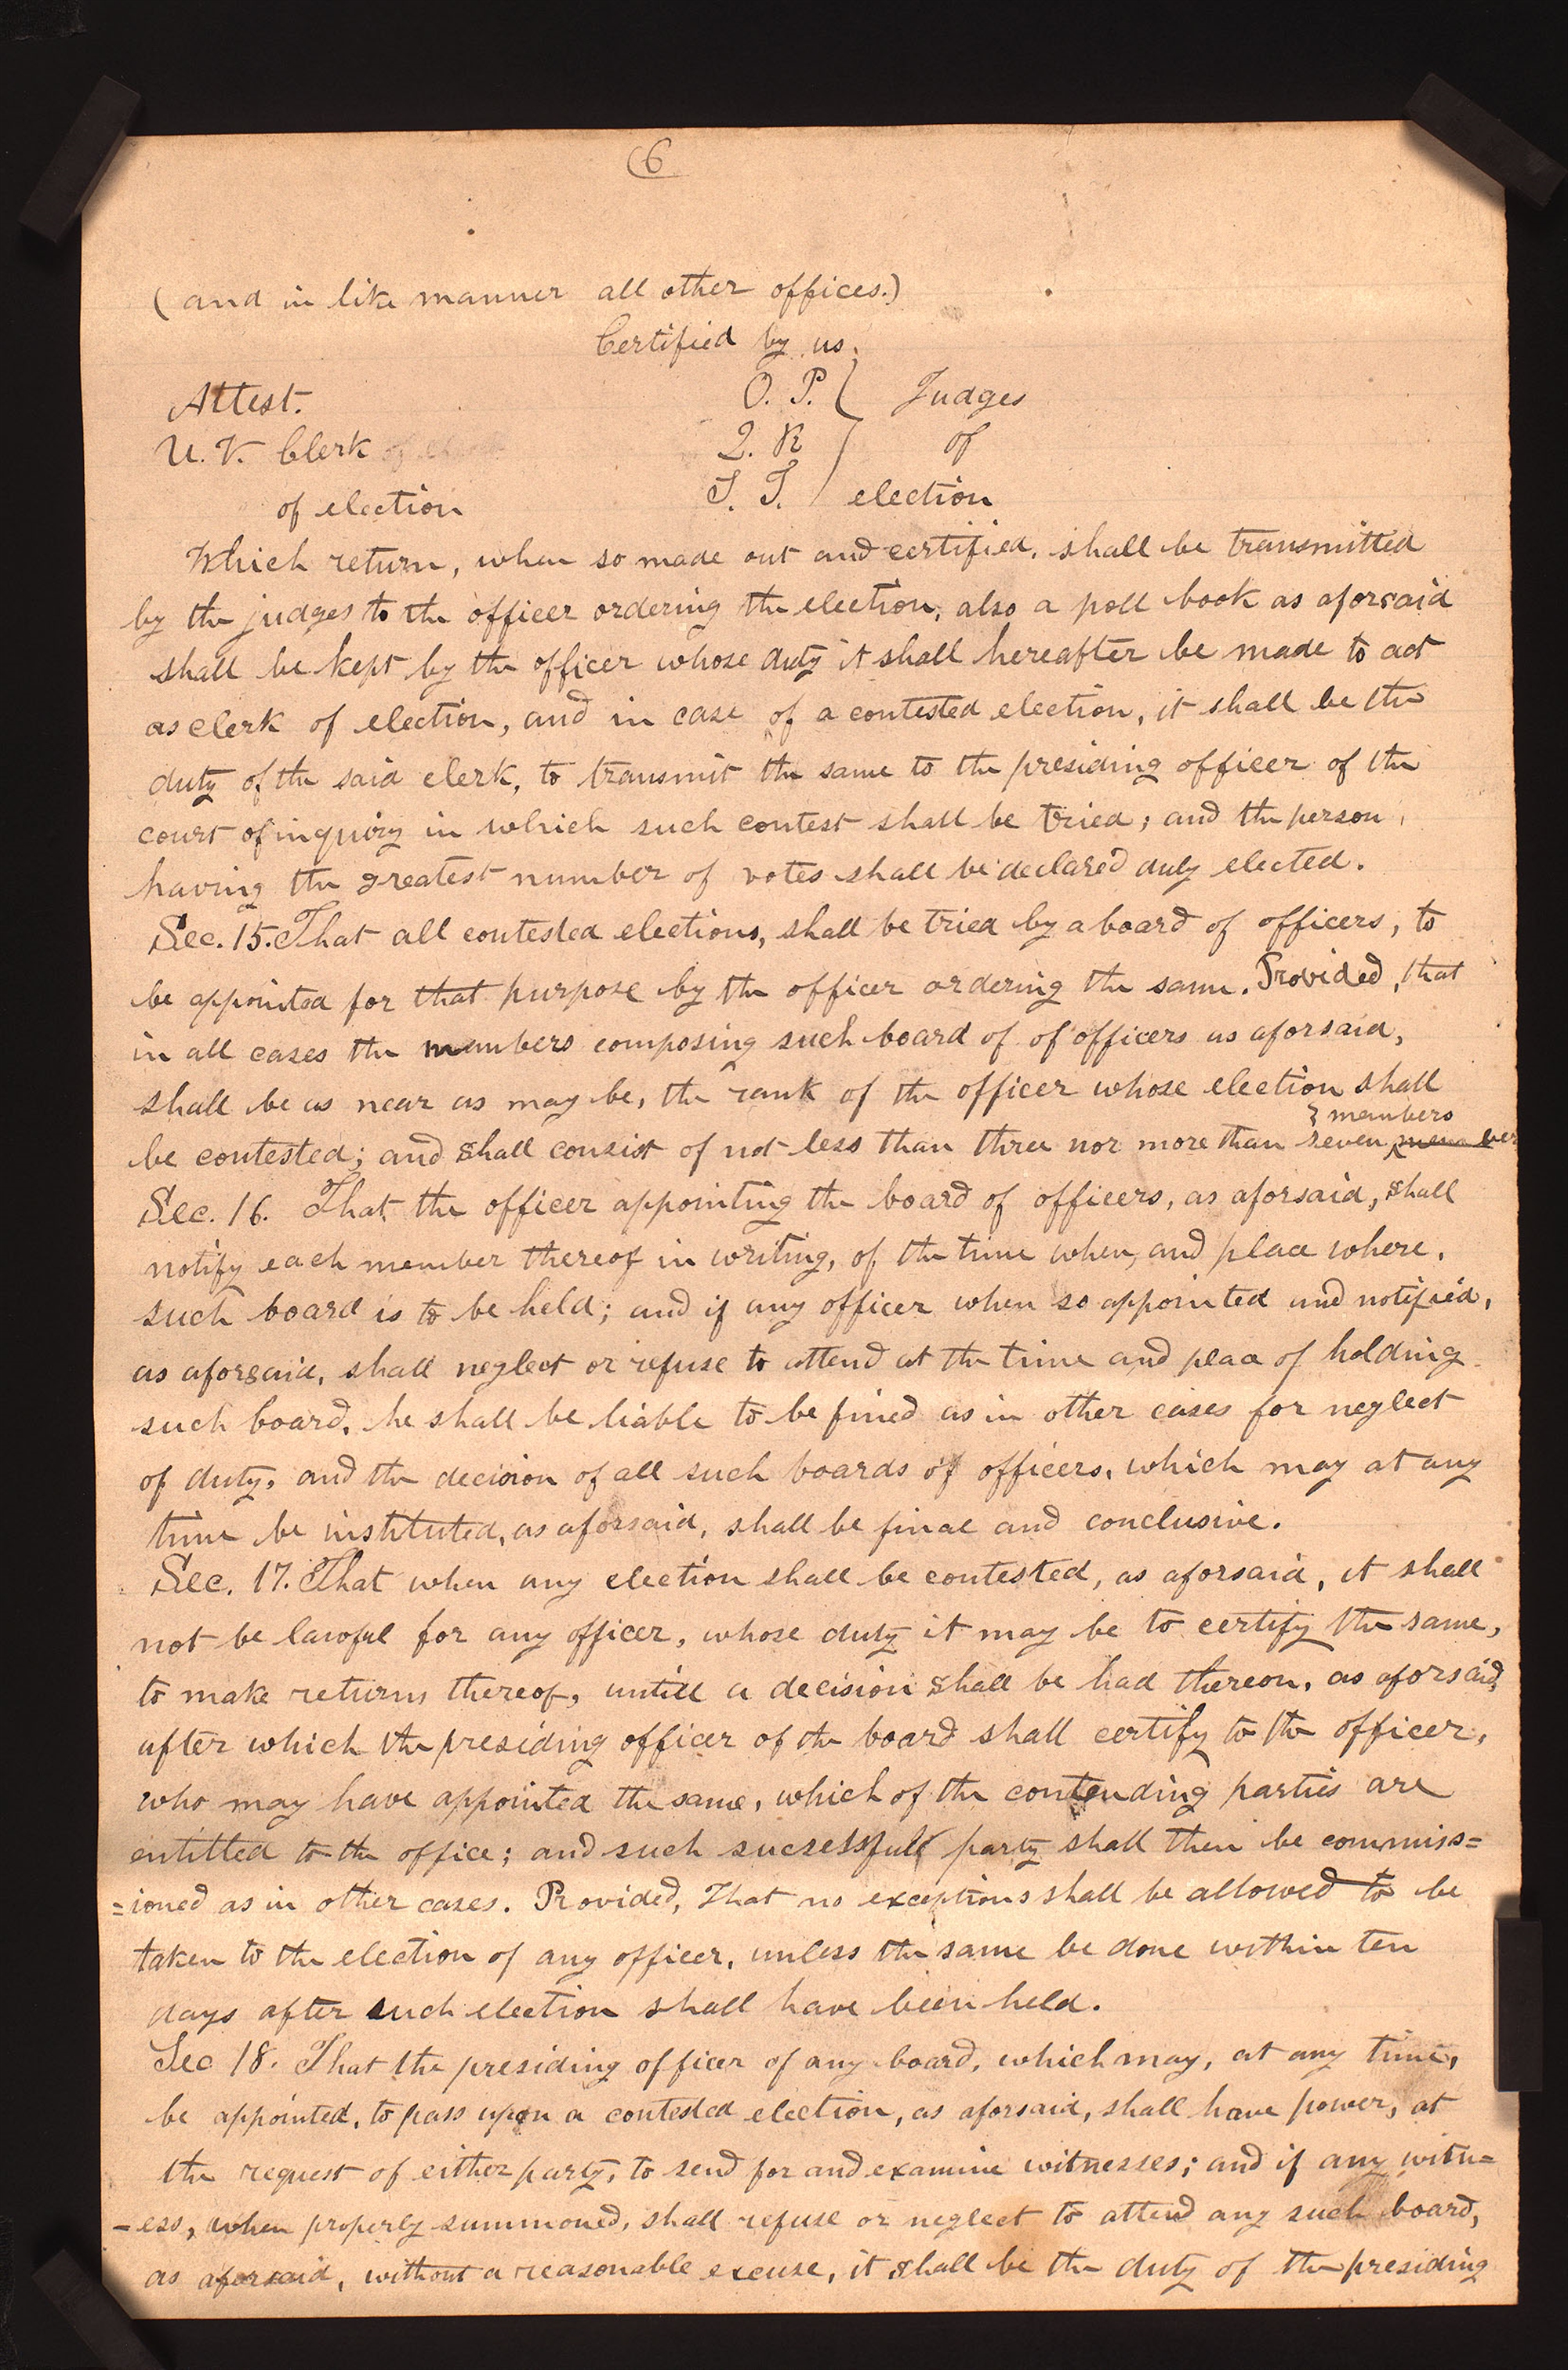 6
(and in like manner all other offices.)
Certified by us,
Attest. O. P. Judges
U. V. Clerk Q. R of
of election S. T. election
Which return, when so made out and certified, shall be transmitted
by the judges to the officer ordering the election, also a poll book as aforsaid
shall be kept by the officer whose duty it shall hereafter be made to act
as clerk of election, and in case of a contested election, it shall be the
duty of the said clerk, to transmit the same to the presiding officer of the
court of inquiry in which such contest shall be tried; and the person,
having the greatest number of votes shall be declared duly elected.
Sec. 15. That all contested elections, shall be tried by a board of officers, to
be appointed for that purpose by the officer ordering the same. Provided, that
in all cases the members composing such board of of officers as aforsaid,
shall be as near as may be, the rank of the officer whose election shall
members
be contested; and shall consist of not less than three nor more than seven
Sec. 16. That the officer appointing the board of officers, as aforsaid, shall
notify each member thereof in writing, of the time when, and place where,
such board is to be held; and if any officer when so appointed and notified,
as aforsaid, shall neglect or refuse to attend at the time and place of holding
such board, he shall be liable to be fined as in other cases for neglect
of duty, and the decision of all such boards of officers, which may at any
time be instituted, as aforsaid, shall be final and conclusive.
Sec. 17. That when any election shall be contested, as aforsaid, it shall
not be lawful for any officer, whose duty it may be to certify the same,
to make returns thereof, untill a decision shall be had thereon, as aforsaid,
after which the presiding officer of the board shall certify to the officer,
who may have appointed the same, which of the contending parties are
entitled to the office; and such sucsessfull party shall then be commiss=
=ioned as in other cases. Provided, That no exceptions shall be allowed to be
taken to the election of any officer, unless the same be done within ten
days after such election shall have been held.
Sec 18. That the presiding officer of any board, which may, at any time,
be appointed, to pass upon a contested election, as aforsaid, shall have power, at
the request of either party, to send for and examine witnesses; and if any witn=
-ess, when properly summoned, shall refuse or neglect to attend any such board,
as aforsaid, without a reasonable excuse, it shall be the duty of the presiding